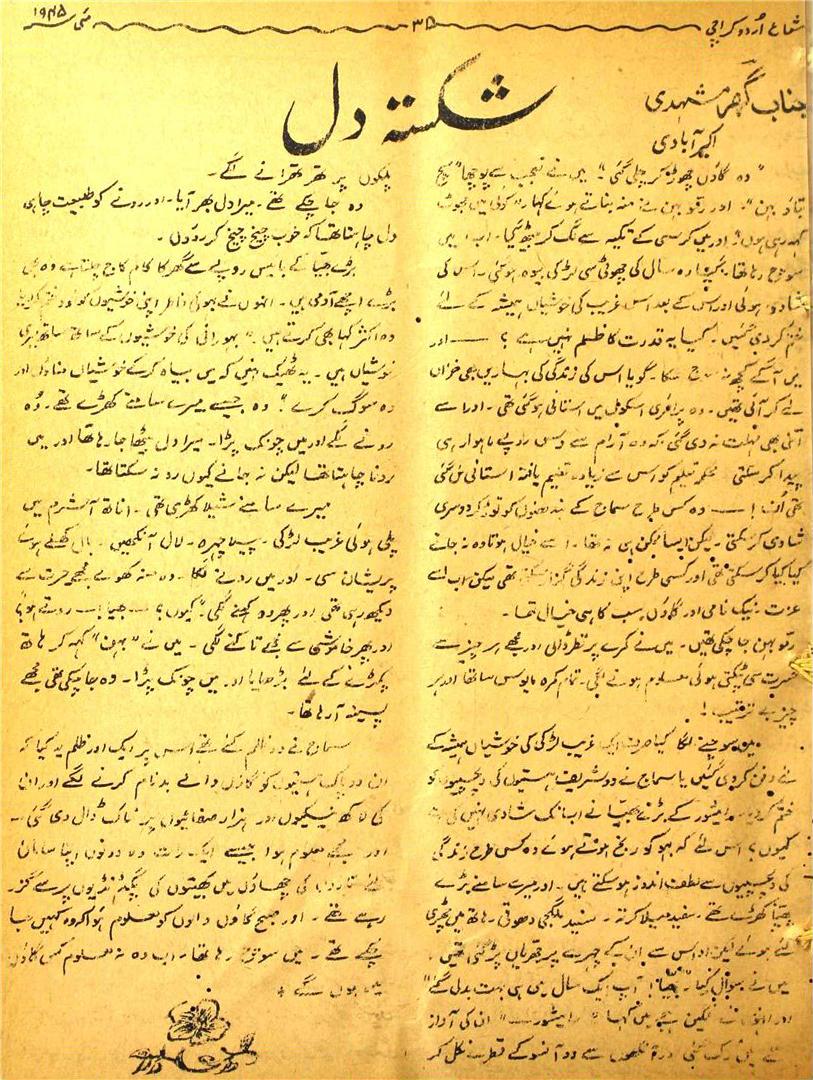 شعاع اُردو کراچی
۳۵
مئی ۱۹۴۵
شکستہ دل
جناب گھر مشہدی
اکبر آبادی
"وہ گاؤں چھوڑ کر چلی گئی"۔ میں نے تعجب سے پوچھا "سچ
بتاؤ بہن"۔ اور رقو بہن نے منہ بناتے ہوئے کہا۔ "کوئی میں جھوٹ
کہہ رہی ہوں" اور میں کرسی کے تکیہ سے لگ کر بیٹھ گیا۔ اب میں
سوچ رہا تھا۔ گیارہ سال کی چھوٹی سی لڑکی بیوہ ہوگئی۔ اس کی
شادی ہوئی اور اس کے بعد اس غریب کی خوشیاں ہمیشہ کے لئے
ختم کر دی گئیں۔ کیا یہ قدرت کا ظلم نہیں ہے؟ — اور
میں آگے کچھ نہ سوچ سکا۔ گویا اس کی زندگی کی بہاریں بھی خزاں
لے کر آئی تھیں۔ وہ پرائمری اسکول میں استانی ہوگئی تھی۔ اور اسے
اتنی بھی مہلت نہ دی گئی کہ وہ آرام سے دس روپے ماہوار ہی
پیدا کر سکتی محکمہ تعلیم کو اس سے زیادہ تعلیم یافتہ استانی مل گئی
تھی اُف! — وہ کس طرح سماج کے بندھنوں کو توڑ کر دوسری
شادی کر سکتی۔ لیکن ایسا لیکن ہی نہ تھا۔ اسے خیال ہوتا وہ نہ جانے
کیا کیا کر سکتی تھی اور کسی طرح اپنی زندگی گزار سکتی تھی لیکن اب اسے
عزت۔ نیک نامی اور گاؤں سب کا ہی خیال تھا۔
رقو بہن جا چکی تھیں۔ میں نے کمرے پر نظر ڈالی اور مجھے ہر چیز سے
حسرت سی ٹپکتی ہوئی معلوم ہونے لگی۔ تمام کمرہ مایوس سا تھا اور ہر
چیز بے ترتیب۔!
میں سوچنے لگا کیا صرف ایک غریب لڑکی کی خوشیاں ہمیشہ کے
لئے دفن کر دی گئیں یا سماج نے دو شریف ہستیوں کی دلچسپیوں کو
ختم کر دیا۔ رامیشور کے بڑے بھیا نے اب تک شادی نہیں کی
کیوں؟ اس لئے کہ بہو کو رنج ہوتے ہوئے وہ کس طرح زندگی
کی دلچسپیوں سے لطف اندوز ہو سکتے ہیں۔ اور میرے سامنے بڑے
بھیا کھڑے تھے۔ سفید میلا کرتہ۔ سفید ملگجی دھوتی۔ ہاتھ میں چھڑی
لئے ہوئے لیکن اداس سے ان کے چہرے پر جھریاں پڑ گئی تھیں۔
میں نے سوال کیا۔ "بھیا! آپ ایک سال میں ہی بہت بدل گئے"
اور انہوں نے غمگین لہجہ میں کہا "رامیشور" ان کی آواز
رک گئی اور آنکھوں سے دو آنسو کے قطرے نکل کر
پلکوں پر تھرتھرانے لگے۔
وہ جا چکے تھے۔ میرا دل بھر آیا۔ اور رونے کو طبیعت چاہی
دل چاہتا تھا کہ خوب چیخ چیخ کر رؤں۔
بڑے بھیا کے بائیس روپے سے گھر کا کام کاج چلتا ہے وہ بھی
بڑے اچھے آدمی ہیں۔ انہوں نے بہو کی خاطر اپنی خوشیوں کو خود ختم کر دیا
وہ اکثر کہا بھی کرتے ہیں۔ "بہو رانی کی خوشیوں کے ساتھ ساتھ میری
خوشیاں ہیں۔ یہ ٹھیک نہیں کہ میں بیاہ کر کے خوشیاں مناؤں اور
وہ سوگ کرے"۔ وہ جیسے میرے سامنے کھڑے تھے۔ وُہ
رونے لگے اور میں چونک پڑا۔ میرا دل بیٹھا جا رہا تھا اور میں
رونا چاہتا تھا لیکن نہ جانے کیوں رو نہ سکتا تھا۔
میرے سامنے شیلا کھڑی تھی۔ اناتھ آشرم میں
پلی ہوئی غریب لڑکی۔ پیلا چہرہ۔ لال آنکھیں۔ بال کھلے ہوئے
پریشان سی۔ اور میں رونے لگا۔ وہ منہ کھولے مجھے حسرت سے
دیکھ رہی تھی اور پھر وہ کہنے لگی۔ "کیوں؟ — بھیا — روتے ہو؟
اور پھر خاموشی سے مجھے تاکنے لگی۔ میں نے "بہن" کہہ کر ہاتھ
پکڑنے کے لئے بڑھایا اور میں چونک پڑا۔ وہ جا چکی تھی مجھے
پسینہ آ رہا تھا۔
سماج نے دو ظلم کئے تھے اس پر ایک اور ظلم یہ کیا کہ
ان دو پاک ہستیوں کو گاؤں والے بدنام کرنے لگے اور ان
کی لاکھ نیکیوں اور ہزار صفائیوں پر خاک ڈال دی گئی۔
اور مجھے معلوم ہوا جیسے ایک رات وہ دونوں اپنا سامان
لئے تاروں کی چھاؤں میں کھیتوں کی پگڈنڈیوں پر سے گزر
رہے تھے۔ اور صبح گاؤں والوں کو معلوم ہوا کہ وہ کہیں جا
چکے تھے۔ میں سوچ رہا تھا۔ اب وہ نہ معلوم کس گاؤں
میں ہوں گے۔